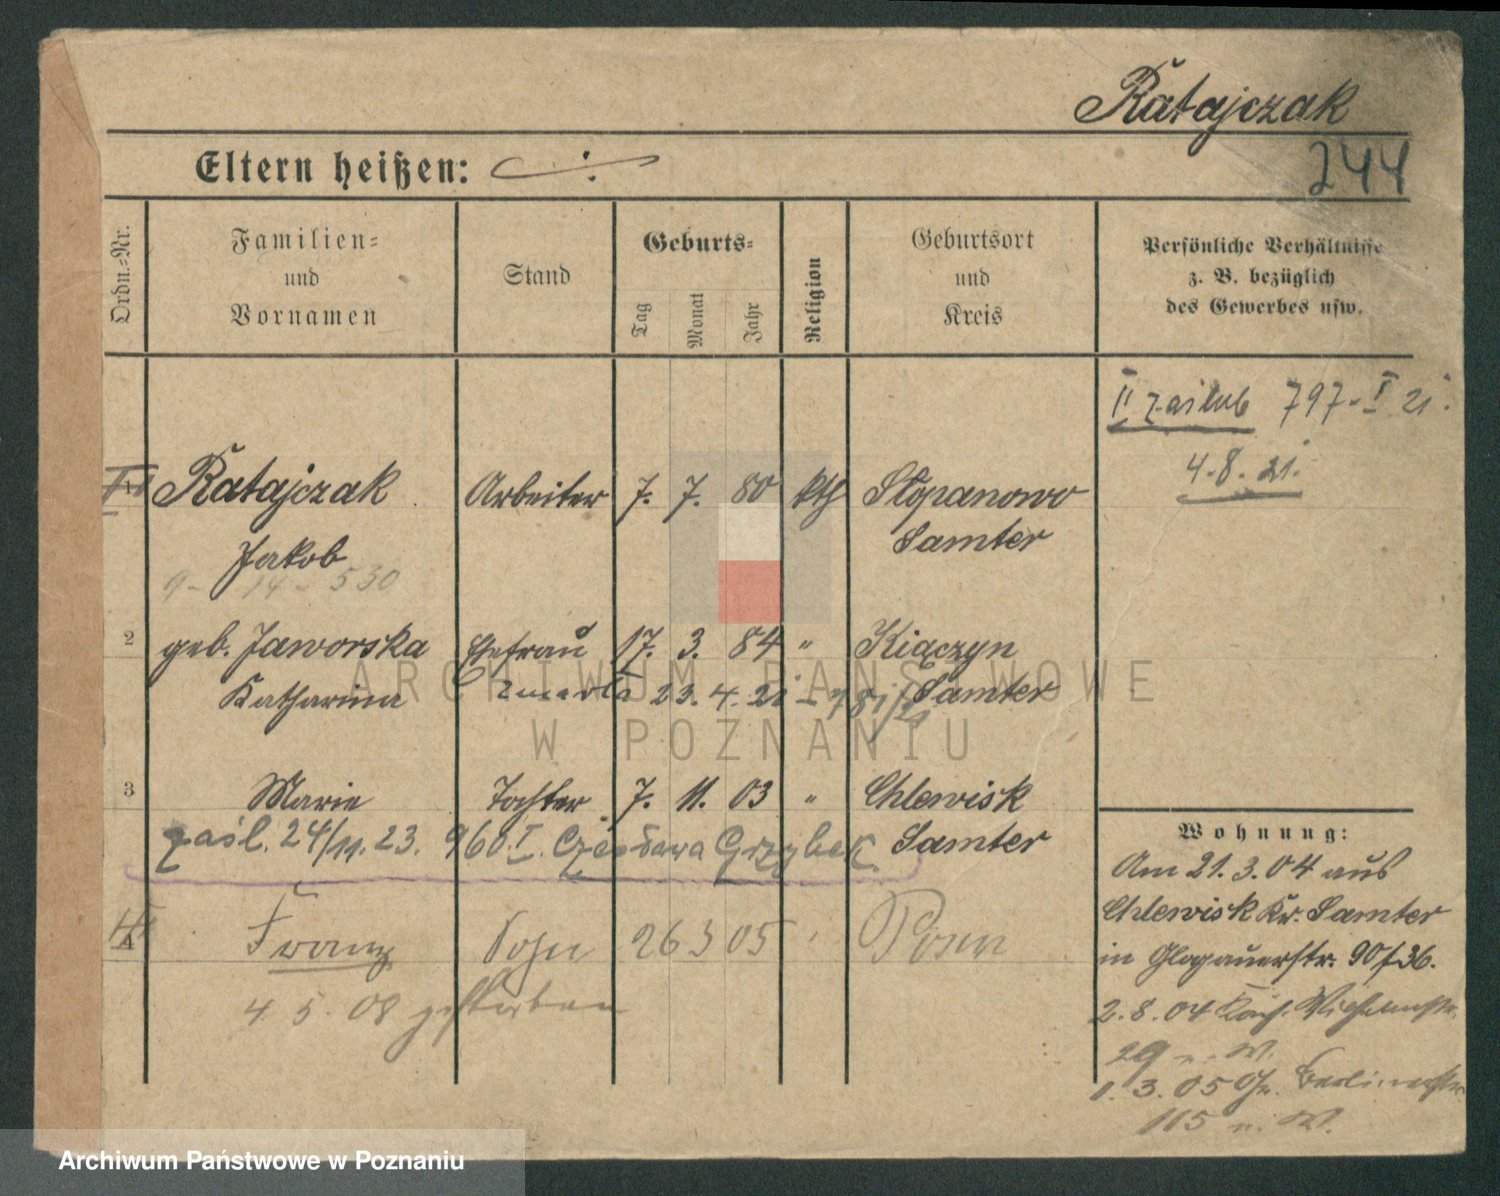 Ratajczak
244
Eltern heißen: ./.
Ordn.-Nr.
Familien-
und
Vornamen
Stand
Geburts-
Tag
Monat
Jahr
Religion
Geburtsort
und
Kreis
Persönliche Verhältnisse
z. B. bezüglich
des Gewerbes usw.
II zaślub 797-I 21.
4.8.21.
1 Ratajczak Arbeiter 7. 7. 80 kth Słopanowo
Jakob Samter
9 - 14 - 530
2 geb. Jaworska Ehefrau 17. 3. 84 " Kiączyn
Katharina zmarła 23.4.21 I 781/21 Samter
3 Marie Tochter 7. 11. 03 " Chlewisk
Samter
zaśl. 24/11.23. 960.I. Czesława Grzybek.
4 Franz Sohn 26 3 05 ' Posen
4. 5. 08 gestorben
Wohnung:
Am 21.3.04 aus
Chlewisk Kr. Samter
in Glogauerstr. 90/36.
2.8.04
29
1.3.05 Berlinerstr.
115
ARCHIWUM PAŃSTWOWE
W POZNANIU
Archiwum Państwowe w Poznaniu